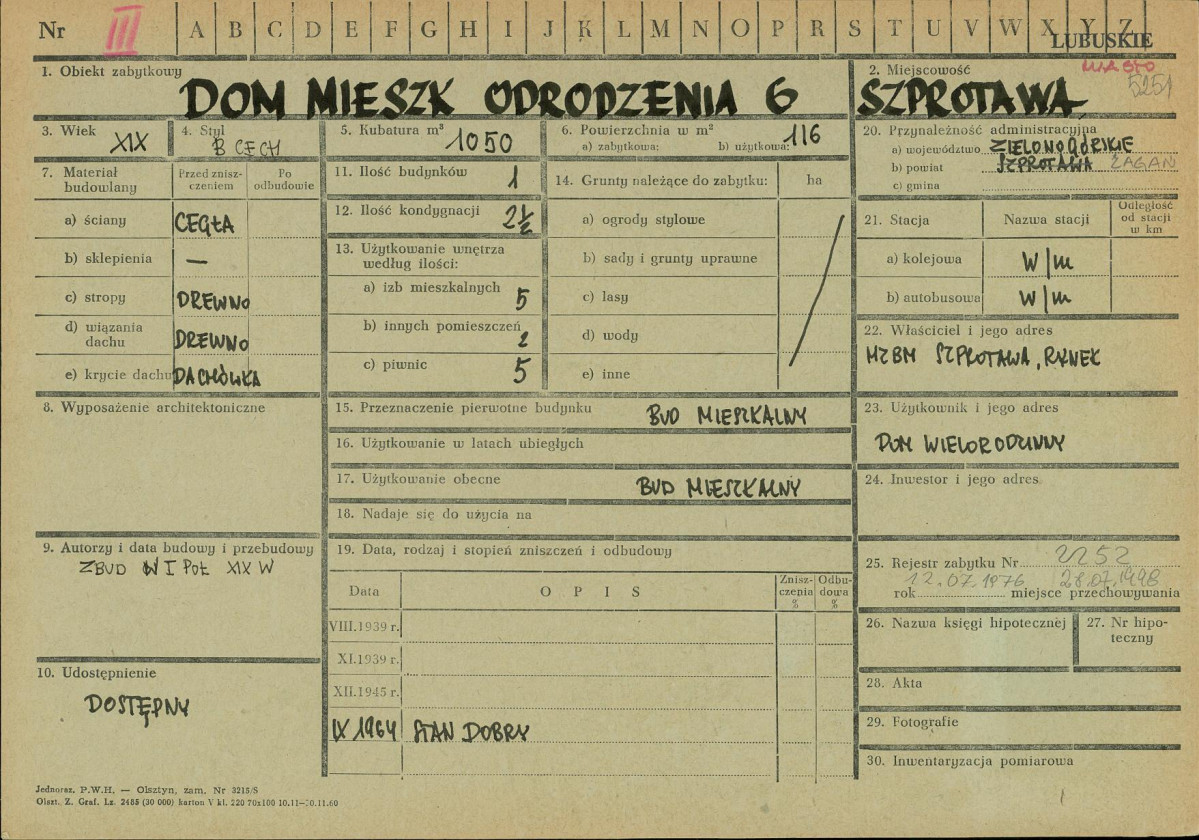 Nr III A B C D E F G H I J K L M N O P R S T U V W X Y Z
LUBUSKIE
MIASTO
5251
1. Obiekt zabytkowy
DOM MIESZK ODRODZENIA 6
2. Miejscowość
SZPROTAWA
3. Wiek
XIX
4. Styl
B CECH
5. Kubatura m³
1050
6. Powierzchnia w m²
a) zabytkowa: b) użytkowa: 116
20. Przynależność administracyjna
a) województwo ZIELONOGÓRSKIE
b) powiat SZPROTAWA ŻAGAŃ
c) gmina
7. Materiał budowlany
Przed zniszczeniem
Po odbudowie
a) ściany CEGŁA
b) sklepienia —
c) stropy DREWNO
d) wiązania dachu DREWNO
e) krycie dachu DACHÓWKA
11. Ilość budynków 1
12. Ilość kondygnacji 2½
13. Użytkowanie wnętrza
według ilości:
a) izb mieszkalnych 5
b) innych pomieszczeń 2
c) piwnic 5
14. Grunty należące do zabytku: ha
a) ogrody stylowe
b) sady i grunty uprawne
c) lasy
d) wody
e) inne
21. Stacja
Nazwa stacji
Odległość
od stacji
w km
a) kolejowa w/m
b) autobusowa w/m
22. Właściciel i jego adres
MZBM SZPROTAWA, RYNEK
8. Wyposażenie architektoniczne
15. Przeznaczenie pierwotne budynku BUD MIESZKALNY
16. Użytkowanie w latach ubiegłych
17. Użytkowanie obecne BUD MIESZKALNY
18. Nadaje się do użycia na
23. Użytkownik i jego adres
DOM WIELORODZINNY
24. Inwestor i jego adres
9. Autorzy i data budowy i przebudowy
ZBUD W I POŁ XIX W
19. Data, rodzaj i stopień zniszczeń i odbudowy
Data
O P I S
Zniszczenia %
Odbudowa %
VIII.1939 r.
XI.1939 r.
XII.1945 r.
IX 1964 STAN DOBRY
25. Rejestr zabytku Nr 2252
12.07.1976 28.07.1998
rok miejsce przechowywania
26. Nazwa księgi hipotecznej
27. Nr hipoteczny
10. Udostępnienie
DOSTĘPNY
28. Akta
29. Fotografie
30. Inwentaryzacja pomiarowa
Jednoraz. P.W.H. — Olsztyn, zam. Nr 3215/S
Olszt. Z. Graf. Lz. 2485 (30 000) karton V kl. 220 70x100 10.11—10.11.60